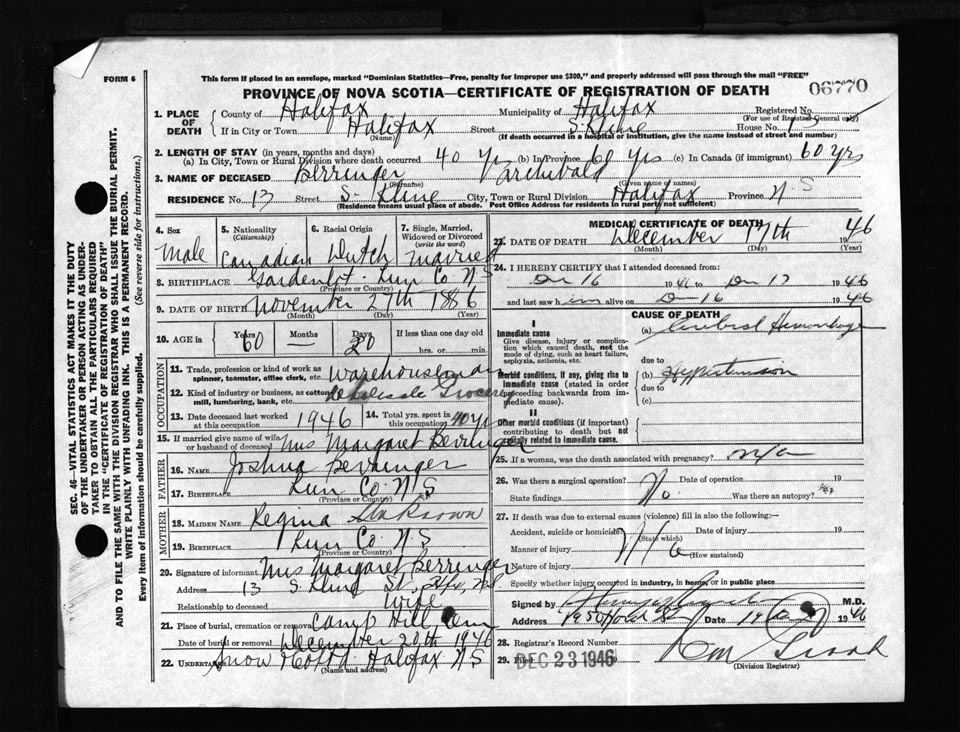 FORM 6
This form if placed in an envelope, marked "Dominion Statistics—Free, penalty for improper use $300," and properly addressed will pass through the mail "FREE"
06770
PROVINCE OF NOVA SCOTIA—CERTIFICATE OF REGISTRATION OF DEATH
1. PLACE OF DEATH
County of Halifax Municipality of Halifax Registered No.
(For use of Registrar General only)
If in City or Town Halifax Street S. Kline House No. 13
(Name) (If death occurred in a hospital or institution, give the name instead of street and number)
2. LENGTH OF STAY (in years, months and days)
(a) In City, Town or Rural Division where death occurred 40 yrs (b) In Province 60 yrs (c) In Canada (if immigrant) 60 yrs
3. NAME OF DECEASED Berringer Archibald
(Surname) (Given name or names)
RESIDENCE No. 13 Street S. Kline City, Town or Rural Division Halifax Province N. S
(Residence means usual place of abode. Post Office Address for residents in rural parts not sufficient)
4. Sex Male
5. Nationality (Citizenship) Canadian
6. Racial Origin Dutch
7. Single, Married, Widowed or Divorced (write the word) Married
8. BIRTHPLACE Lun Co N S
(Province or Country)
9. DATE OF BIRTH November 27th 1886
(Month) (Day) (Year)
10. AGE in Years 60 Months — Days 20 If less than one day old
hrs. or min.
OCCUPATION
11. Trade, profession or kind of work as spinner, teamster, office clerk, etc. Warehouseman
12. Kind of industry or business, as cotton mill, lumbering, bank, etc. Wholesale Grocery
13. Date deceased last worked at this occupation 1946
14. Total yrs. spent in this occupation 40 yrs
15. If married give name of wife or husband of deceased Mrs Margaret Berringer
FATHER
16. NAME Joshua Berringer
17. BIRTHPLACE Lun Co N S
(Province or Country)
MOTHER
18. MAIDEN NAME Regina Unknown
19. BIRTHPLACE Lun Co N. S
(Province or Country)
20. Signature of informant Mrs Margaret Berringer
Address 13 S. Kline St, Hfx, N.S
Relationship to deceased Wife
21. Place of burial, cremation or removal Camp Hill Cem
Date of burial or removal December 20th 1946
22. Undertaker Snow & Co Ltd. Halifax N S
(Name and address)
MEDICAL CERTIFICATE OF DEATH
23. DATE OF DEATH December 17th 1946
(Month) (Day) (Year)
24. I HEREBY CERTIFY that I attended deceased from
Dec 16 1946 to Dec 17 1946
and last saw him alive on Dec 16 1946
CAUSE OF DEATH
I
Immediate cause
Give disease, injury or complication which caused death, not the mode of dying, such as heart failure, asphyxia, asthenia, etc.
(a) Cerebral Hemorrhage
due to
Morbid conditions, if any, giving rise to immediate cause (stated in order proceeding backwards from immediate cause).
(b) Hypertension
due to
(c)
II
Other morbid conditions (if important) contributing to death but not causally related to immediate cause.
25. If a woman, was the death associated with pregnancy? n/a
26. Was there a surgical operation? No Date of operation 19
State findings Was there an autopsy? No
27. If death was due to external causes (violence) fill in also the following:—
Accident, suicide or homicide? Date of injury 19
(State which)
Manner of injury N/a
(How sustained)
Nature of injury
Specify whether injury occurred in industry, in home, or in public place
Signed by M.D.
Address Date 1946
28. Registrar's Record Number
29. Filed DEC 23 1946
(Division Registrar)
SEC. 46—VITAL STATISTICS ACT MAKES IT THE DUTY
OF THE UNDERTAKER OR PERSON ACTING AS UNDERTAKER TO OBTAIN ALL THE PARTICULARS REQUIRED
IN THE "CERTIFICATE OF REGISTRATION OF DEATH"
AND TO FILE THE SAME WITH THE DIVISION REGISTRAR WHO SHALL ISSUE THE BURIAL PERMIT.
WRITE PLAINLY WITH UNFADING INK. THIS IS A PERMANENT RECORD.
Every item of information should be carefully supplied. (See reverse side for instructions.)